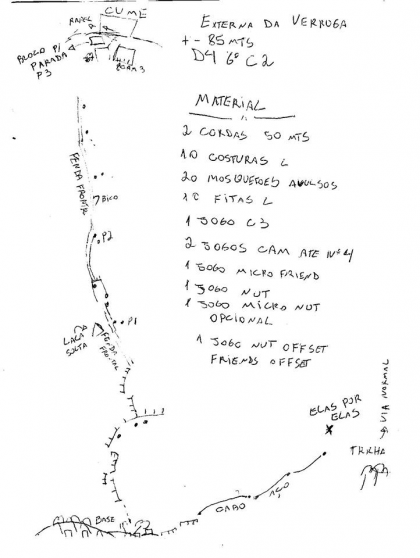 EXTERNA DA VERRUGA
+- 85 MTS
D4 6º C2
MATERIAL
2 CORDAS 50 MTS
10 COSTURAS L
20 MOSQUETOES AVULSOS
10 FITAS L
1 JOGO C3
2 JOGOS CAM ATE Nº4
1 JOGO MICRO FRIEND
1 JOGO NUT
1 JOGO MICRO NUT
OPCIONAL
1 JOGO NUT OFFSET
FRIENDS OFFSET
CUME
RAPEL
BLOCO P/
PARADA
P3
FENDA FRONTAL
BICO
P2
P1
LACA
SOLTA
FENDA
FRONTAL
BASE
CABO
AÇO
ELAS POR
ELAS
TRILHA
VIA NORMAL